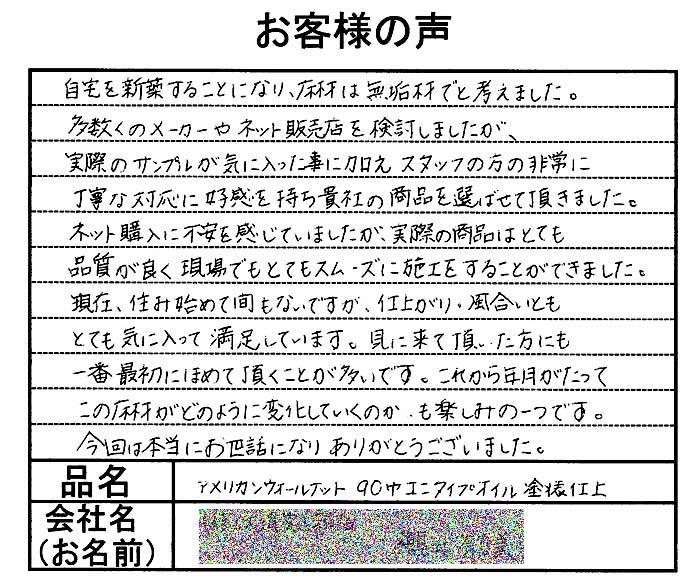 お客様の声
自宅を新築することになり、床材は無垢材でと考えました。
多数くのメーカーやネット販売店を検討しましたが、
実際のサンプルが気に入った事に加え スタッフの方の非常に
丁寧な対応に好感を持ち貴社の商品を選ばせて頂きました。
ネット購入に不安を感じていましたが、実際の商品はとても
品質が良く現場でもとてもスムーズに施工をすることができました。
現在、住み始めて間もないですが、仕上がり・風合いとも
とても気に入って満足しています。見に来て頂いた方にも
一番最初にほめて頂くことが多いです。これから年月がたって
この床材がどのように変化していくのか、も楽しみの一つです。
今回は本当にお世話になりありがとうございました。
品名 アメリカンウォールナット 90巾ユニタイプオイル塗装仕上
会社名
(お名前)